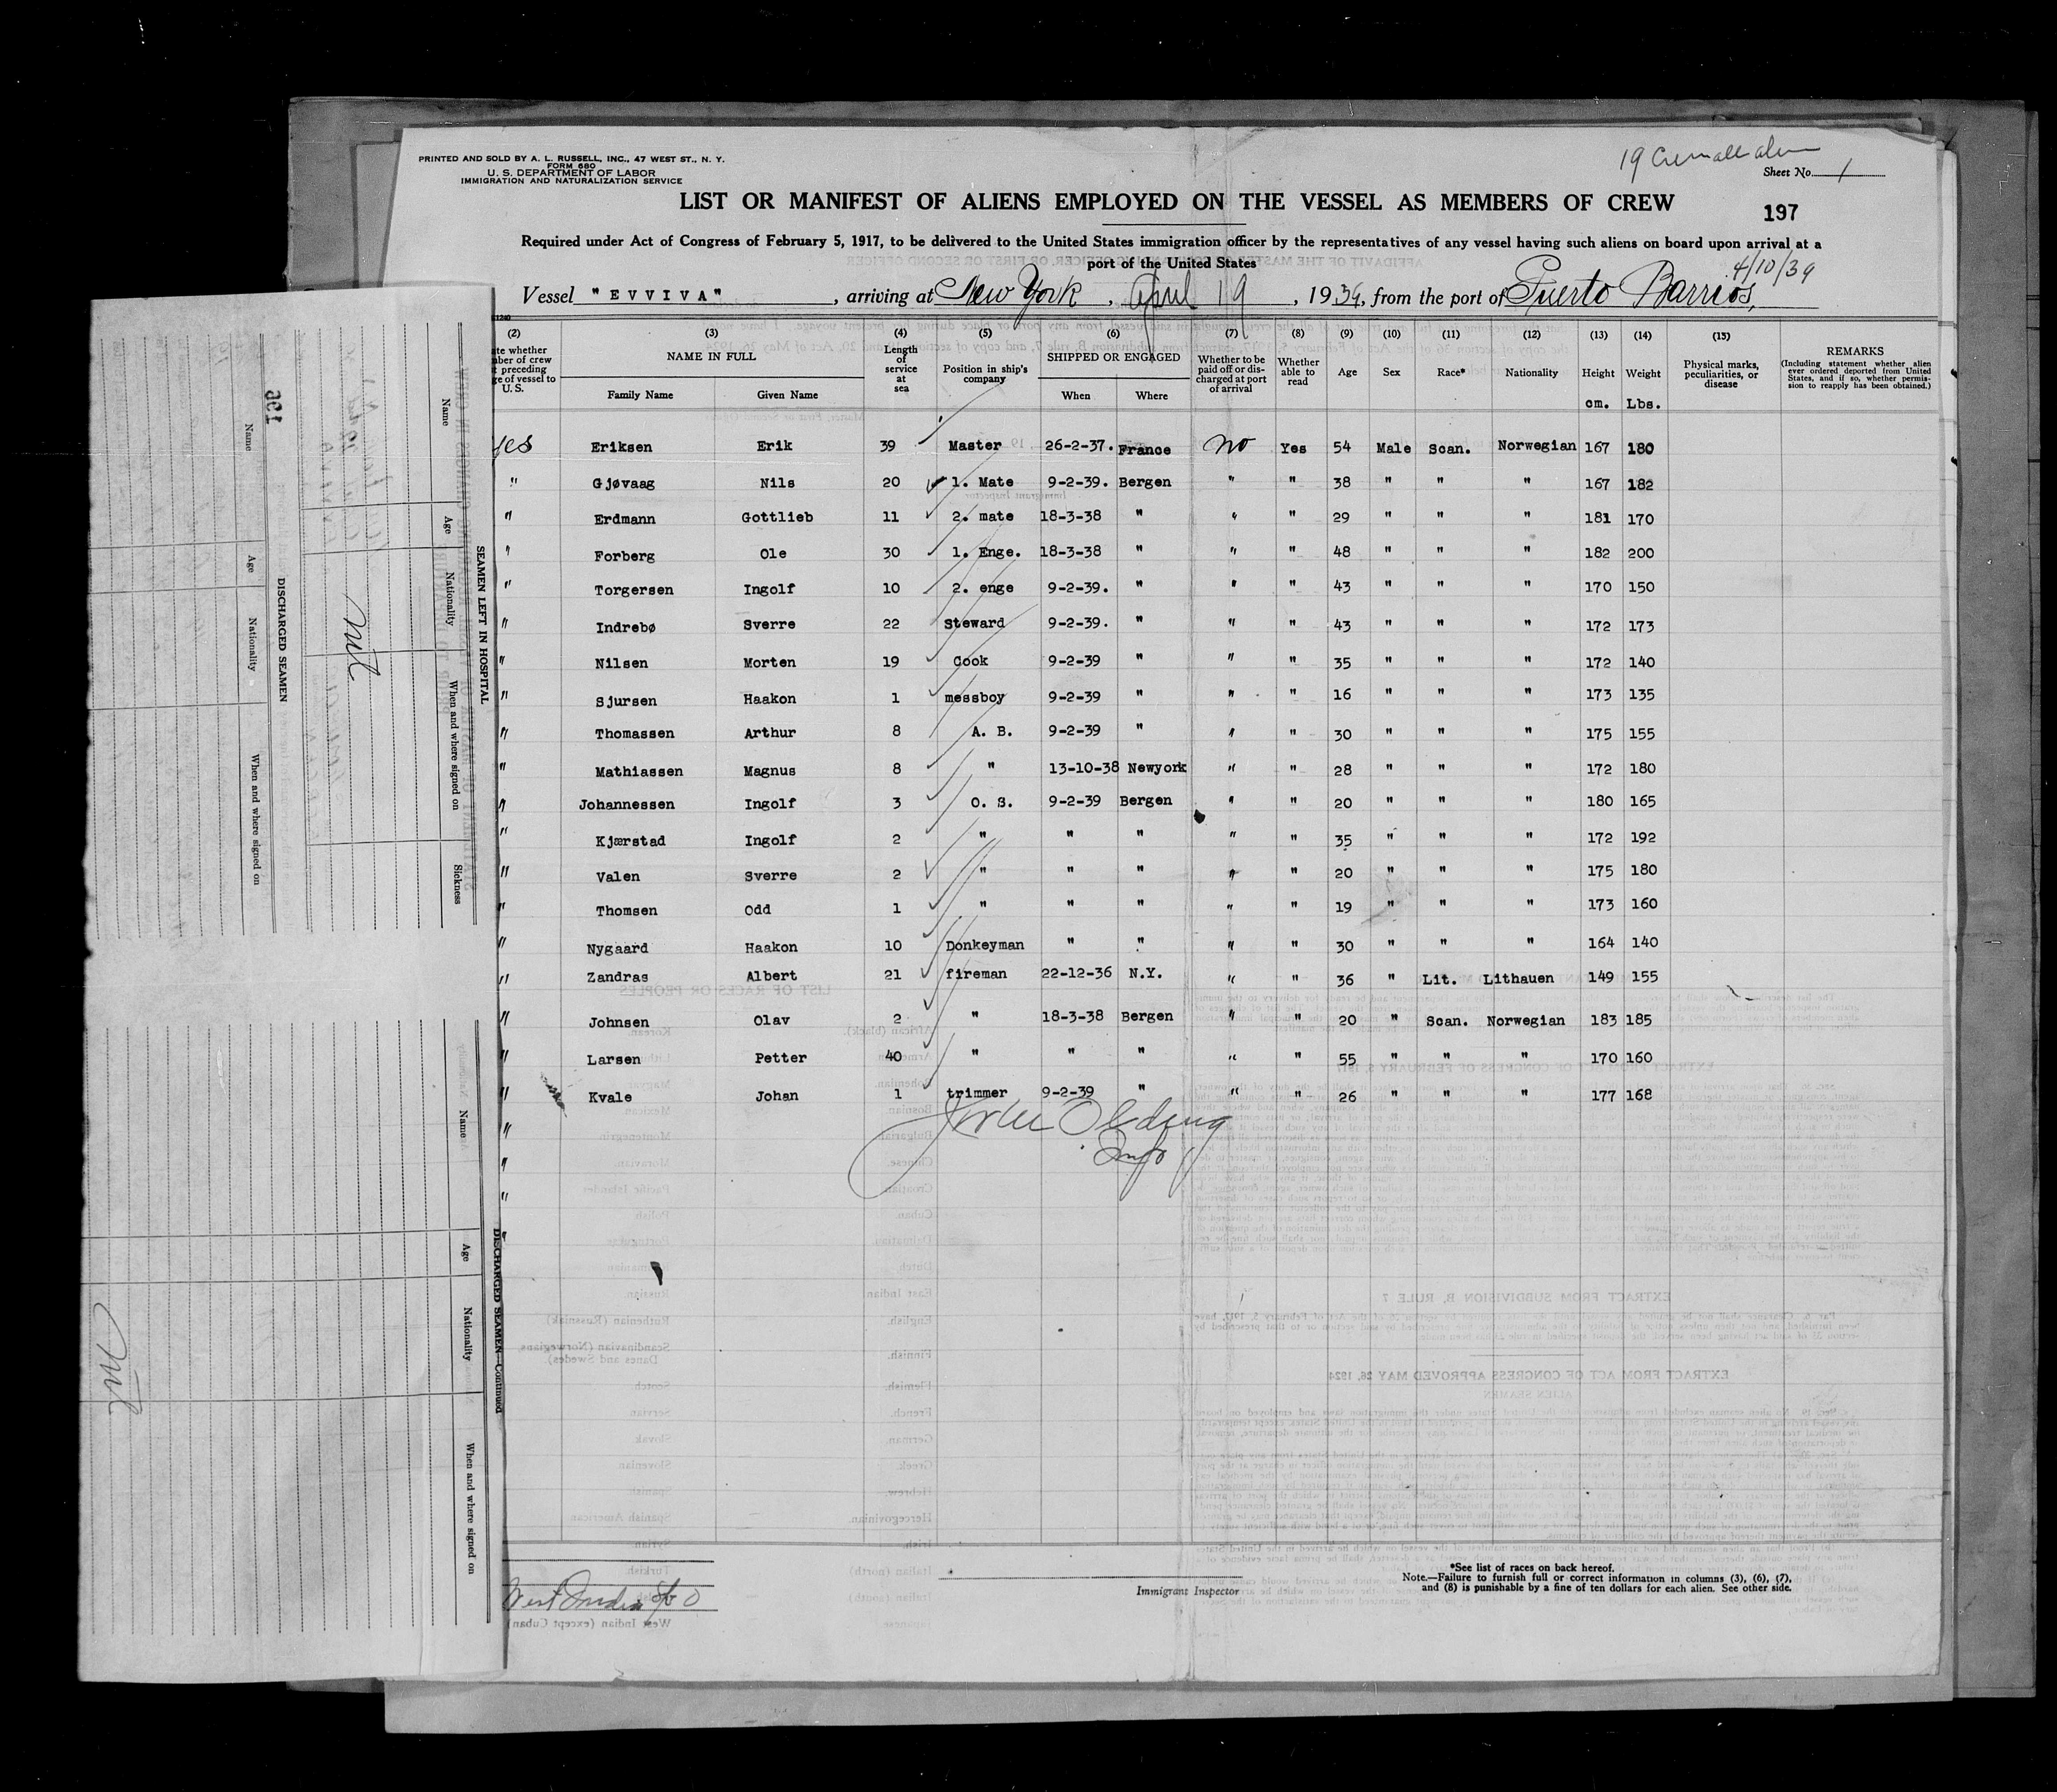 19 Crew all alien
PRINTED AND SOLD BY A. L. RUSSELL, INC., 47 WEST ST., N. Y.
FORM 680
U. S. DEPARTMENT OF LABOR
IMMIGRATION AND NATURALIZATION SERVICE
Sheet No. 1
LIST OR MANIFEST OF ALIENS EMPLOYED ON THE VESSEL AS MEMBERS OF CREW
197
Required under Act of Congress of February 5, 1917, to be delivered to the United States immigration officer by the representatives of any vessel having such aliens on board upon arrival at a
port of the United States
4/10/39
Vessel "EVVIVA", arriving at New York, April 19, 1939, from the port of Puerto Barrios,
(2) (3) (4) (5) (6) (7) (8) (9) (10) (11) (12) (13) (14) (15)
te whether
ber of crew
preceding
ge of vessel to
U. S.
NAME IN FULL
Family Name Given Name
Length of service at sea
Position in ship's company
SHIPPED OR ENGAGED
When Where
Whether to be paid off or discharged at port of arrival
Whether able to read
Age Sex Race* Nationality Height Weight
cm. Lbs.
Physical marks, peculiarities, or disease
REMARKS
(Including statement whether alien ever ordered deported from United States, and if so, whether permission to reapply has been obtained.)
Yes Eriksen Erik 39 Master 26-2-37. France No Yes 54 Male Scan. Norwegian 167 180
" Gjøvaag Nils 20 1. Mate 9-2-39. Bergen " " 38 " " " 167 182
" Erdmann Gottlieb 11 2. mate 18-3-38 " " " 29 " " " 181 170
" Forberg Ole 30 1. Enge. 18-3-38 " " " 48 " " " 182 200
" Torgersen Ingolf 10 2. enge 9-2-39. " " " 43 " " " 170 150
" Indrebø Sverre 22 Steward 9-2-39. " " " 43 " " " 172 173
" Nilsen Morten 19 Cook 9-2-39 " " " 35 " " " 172 140
" Sjursen Haakon 1 messboy 9-2-39 " " " 16 " " " 173 135
" Thomassen Arthur 8 A. B. 9-2-39 " " " 30 " " " 175 155
" Mathiassen Magnus 8 " 13-10-38 Newyork " " 28 " " " 172 180
" Johannessen Ingolf 3 O. S. 9-2-39 Bergen " " 20 " " " 180 165
" Kjærstad Ingolf 2 " " " " " 35 " " " 172 192
" Valen Sverre 2 " " " " " 20 " " " 175 180
" Thomsen Odd 1 " " " " " 19 " " " 173 160
" Nygaard Haakon 10 Donkeyman " " " " 30 " " " 164 140
" Zandras Albert 21 fireman 22-12-36 N.Y. " " 36 " Lit. Lithauen 149 155
" Johnsen Olav 2 " 18-3-38 Bergen " " 20 " Scan. Norwegian 183 185
" Larsen Petter 40 " " " " " 55 " " " 170 160
" Kvale Johan 1 trimmer 9-2-39 " " " 26 " " " 177 168
"
"
"
"
Immigrant Inspector
*See list of races on back hereof.
Note.—Failure to furnish full or correct information in columns (3), (6), (7),
and (8) is punishable by a fine of ten dollars for each alien. See other side.
West Indian
SEAMEN LEFT IN HOSPITAL
Name Age Nationality When and where signed on Sickness
Nil
DISCHARGED SEAMEN
Name Age Nationality When and where signed on
DISCHARGED SEAMEN—Continued
Name Age Nationality When and where signed on
Nil